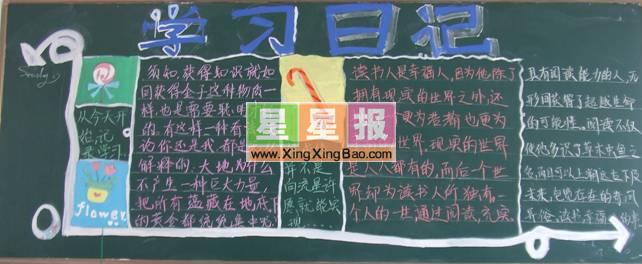 学习日记
Study
从今天开
始，记
学习
flower
须知，获得知识就如
同获得金子这种物质一
样，也是需要耗
的。有这样一种
论你还是我，都是
解释的：大地为什么
不产生一种巨大力量，
把所有蕴藏在地底下
的黄金都统统集中呢
并不是
向流星许
愿就能实
现
读书人是幸福人，因为他除了
拥有现实的世界之外，还
更为浩瀚也更为
世界。现实的世界
是人人都有的，而后一个世
界却为读书人所独有。
一个人的一世通过阅读，充实，
具有阅读能力的人，无
形间获得了超越生命
的可能性。阅读不仅
使他多识了草木虫鱼之
名，而且可以上溯远古下及
未来，饱览存在的奇闻
星星报
www.XingXingBao.com